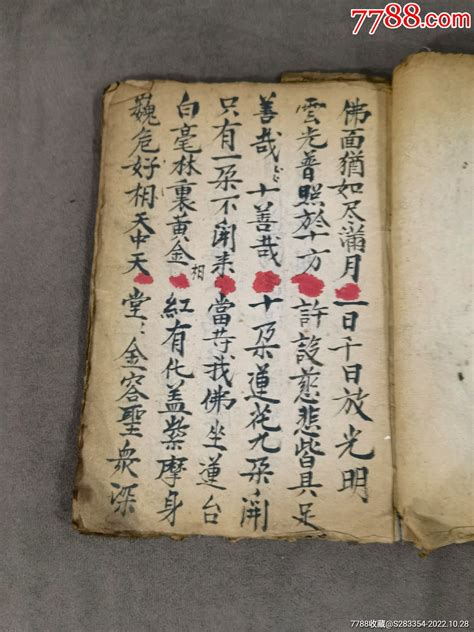 7788.com
佛面猶如尽滿月一日千日放光明
雲光普照於十方許設慈悲皆具足
善哉〻十善哉十朵蓮花九朵開
只有一朵不開来當𠦑我佛坐蓮台
白毫林裏黄金相紅有化盖紫摩身
巍危好相天中天堂〻金容聖衆深
7788收藏@S283354-2022.10.28